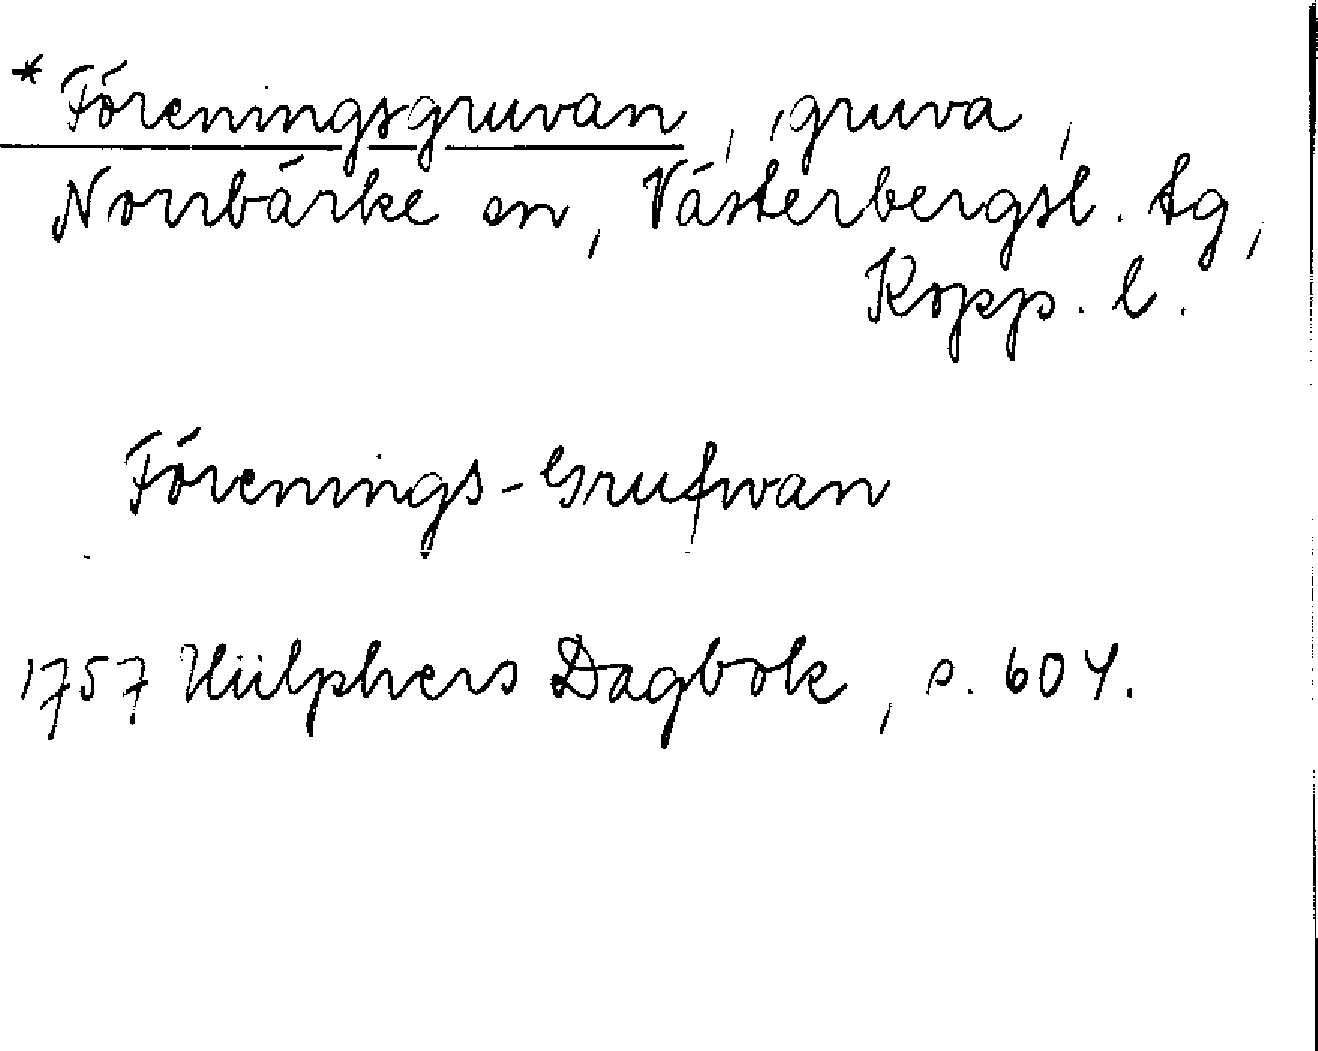 *Föreningsgruvan, gruva,
Norrbärke sn, Västerbergsl. tg,
Kopp. l.
Förenings-Grufwan
1757 Hülphers Dagbok, s. 604.